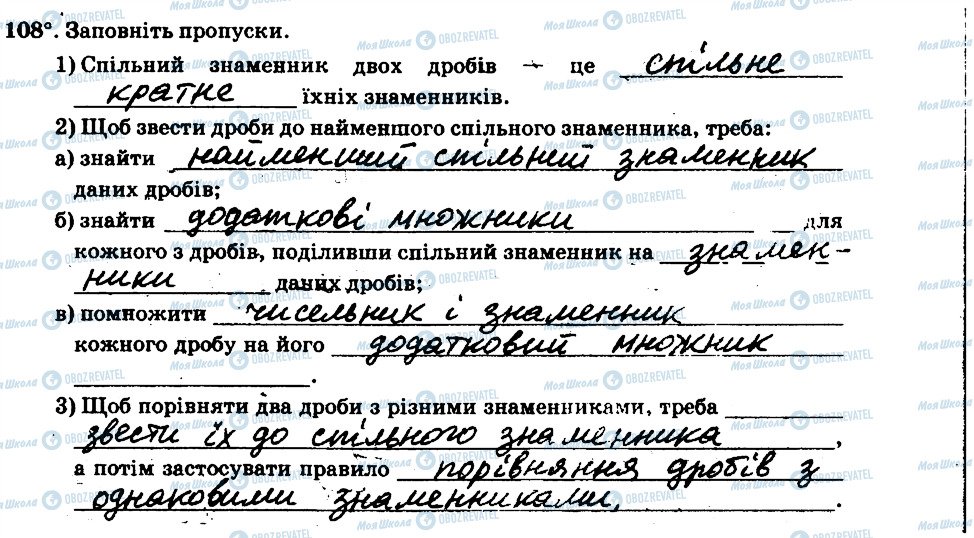 108°. Заповніть пропуски.
1) Спільний знаменник двох дробів — це спільне
кратне їхніх знаменників.
2) Щоб звести дроби до найменшого спільного знаменника, треба:
а) знайти найменший спільний знаменник
даних дробів;
б) знайти додаткові множники для
кожного з дробів, поділивши спільний знаменник на знамен-
ники даних дробів;
в) помножити чисельник і знаменник
кожного дробу на його додатковий множник
.
3) Щоб порівняти два дроби з різними знаменниками, треба
звести їх до спільного знаменника,
а потім застосувати правило порівняння дробів з
однаковими знаменниками.